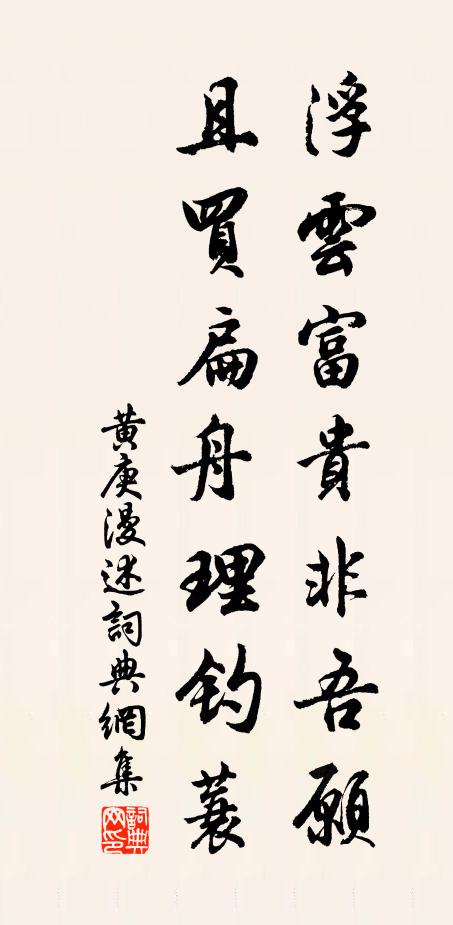 浮雲富貴非吾願
且買扁舟理釣蓑
黄庚漫述詞典網集
詞典網印